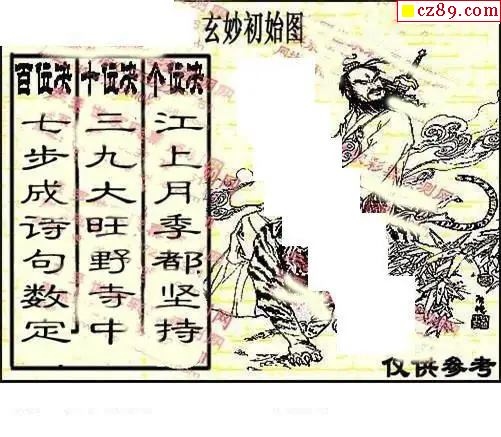 cz89.com
玄妙初始图
百位决
七步成诗句数定
十位决
三九大旺野寺中
个位决
江上月季都坚持
仅供参考